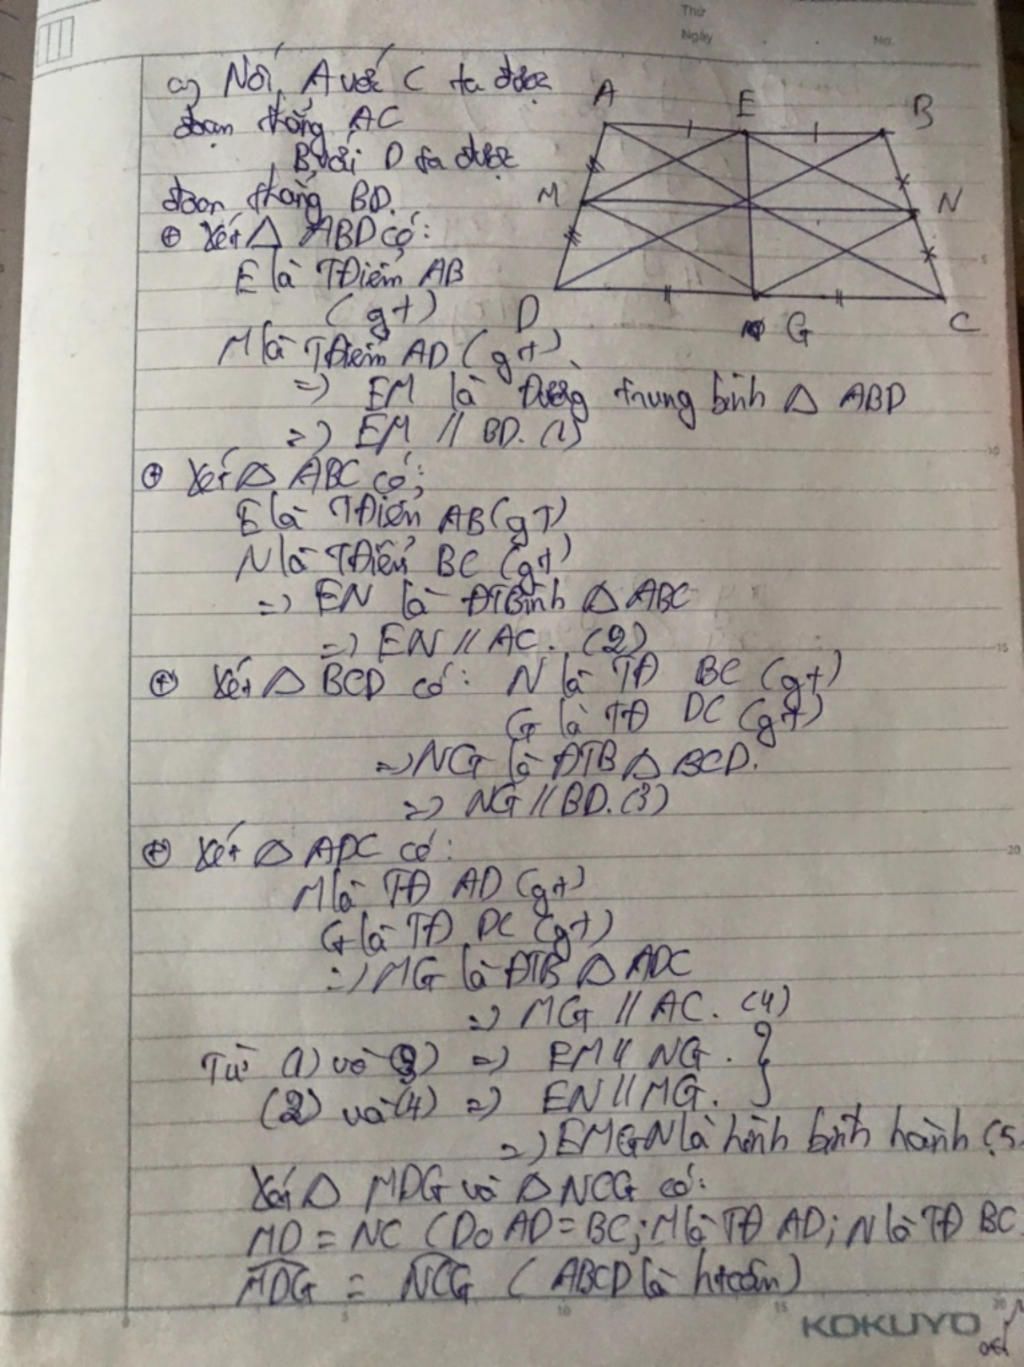 Thứ
Ngày . . No.
a) Nối A với C ta được
đoạn thẳng AC
B với D ta được
đoạn thẳng BD.
A E B
M N
D G C
⊕ Xét △ ABD có:
E là TĐiểm AB
(gt)
M là TĐiểm AD (gt).
=> EM là Đường trung bình △ ABD
=> EM // BD. (1)
⊕ Xét △ ABC có:
E là TĐiểm AB (gT)
N là TĐiểm BC (gt)
=> EN là ĐTBình △ ABC
=> EN // AC. (2)
⊕ Xét △ BCD có: N là TĐ BC (gt)
G là TĐ DC (gt)
=> NG là ĐTB △ BCD.
=> NG // BD. (3)
⊕ Xét △ ADC có:
M là TĐ AD (gt)
G là TĐ DC (gt)
=> MG là ĐTB △ ADC
=> MG // AC. (4)
Từ (1) và (3) => EM // NG. }
(2) và (4) => EN // MG.
=> EMGN là hình bình hành (5
Xét △ MDG và △ NCG có:
MD = NC (Do AD = BC; M là TĐ AD; N là TĐ BC
MDG = NCG (ABCD là htcân)
5 10 15 20
KOKUYO